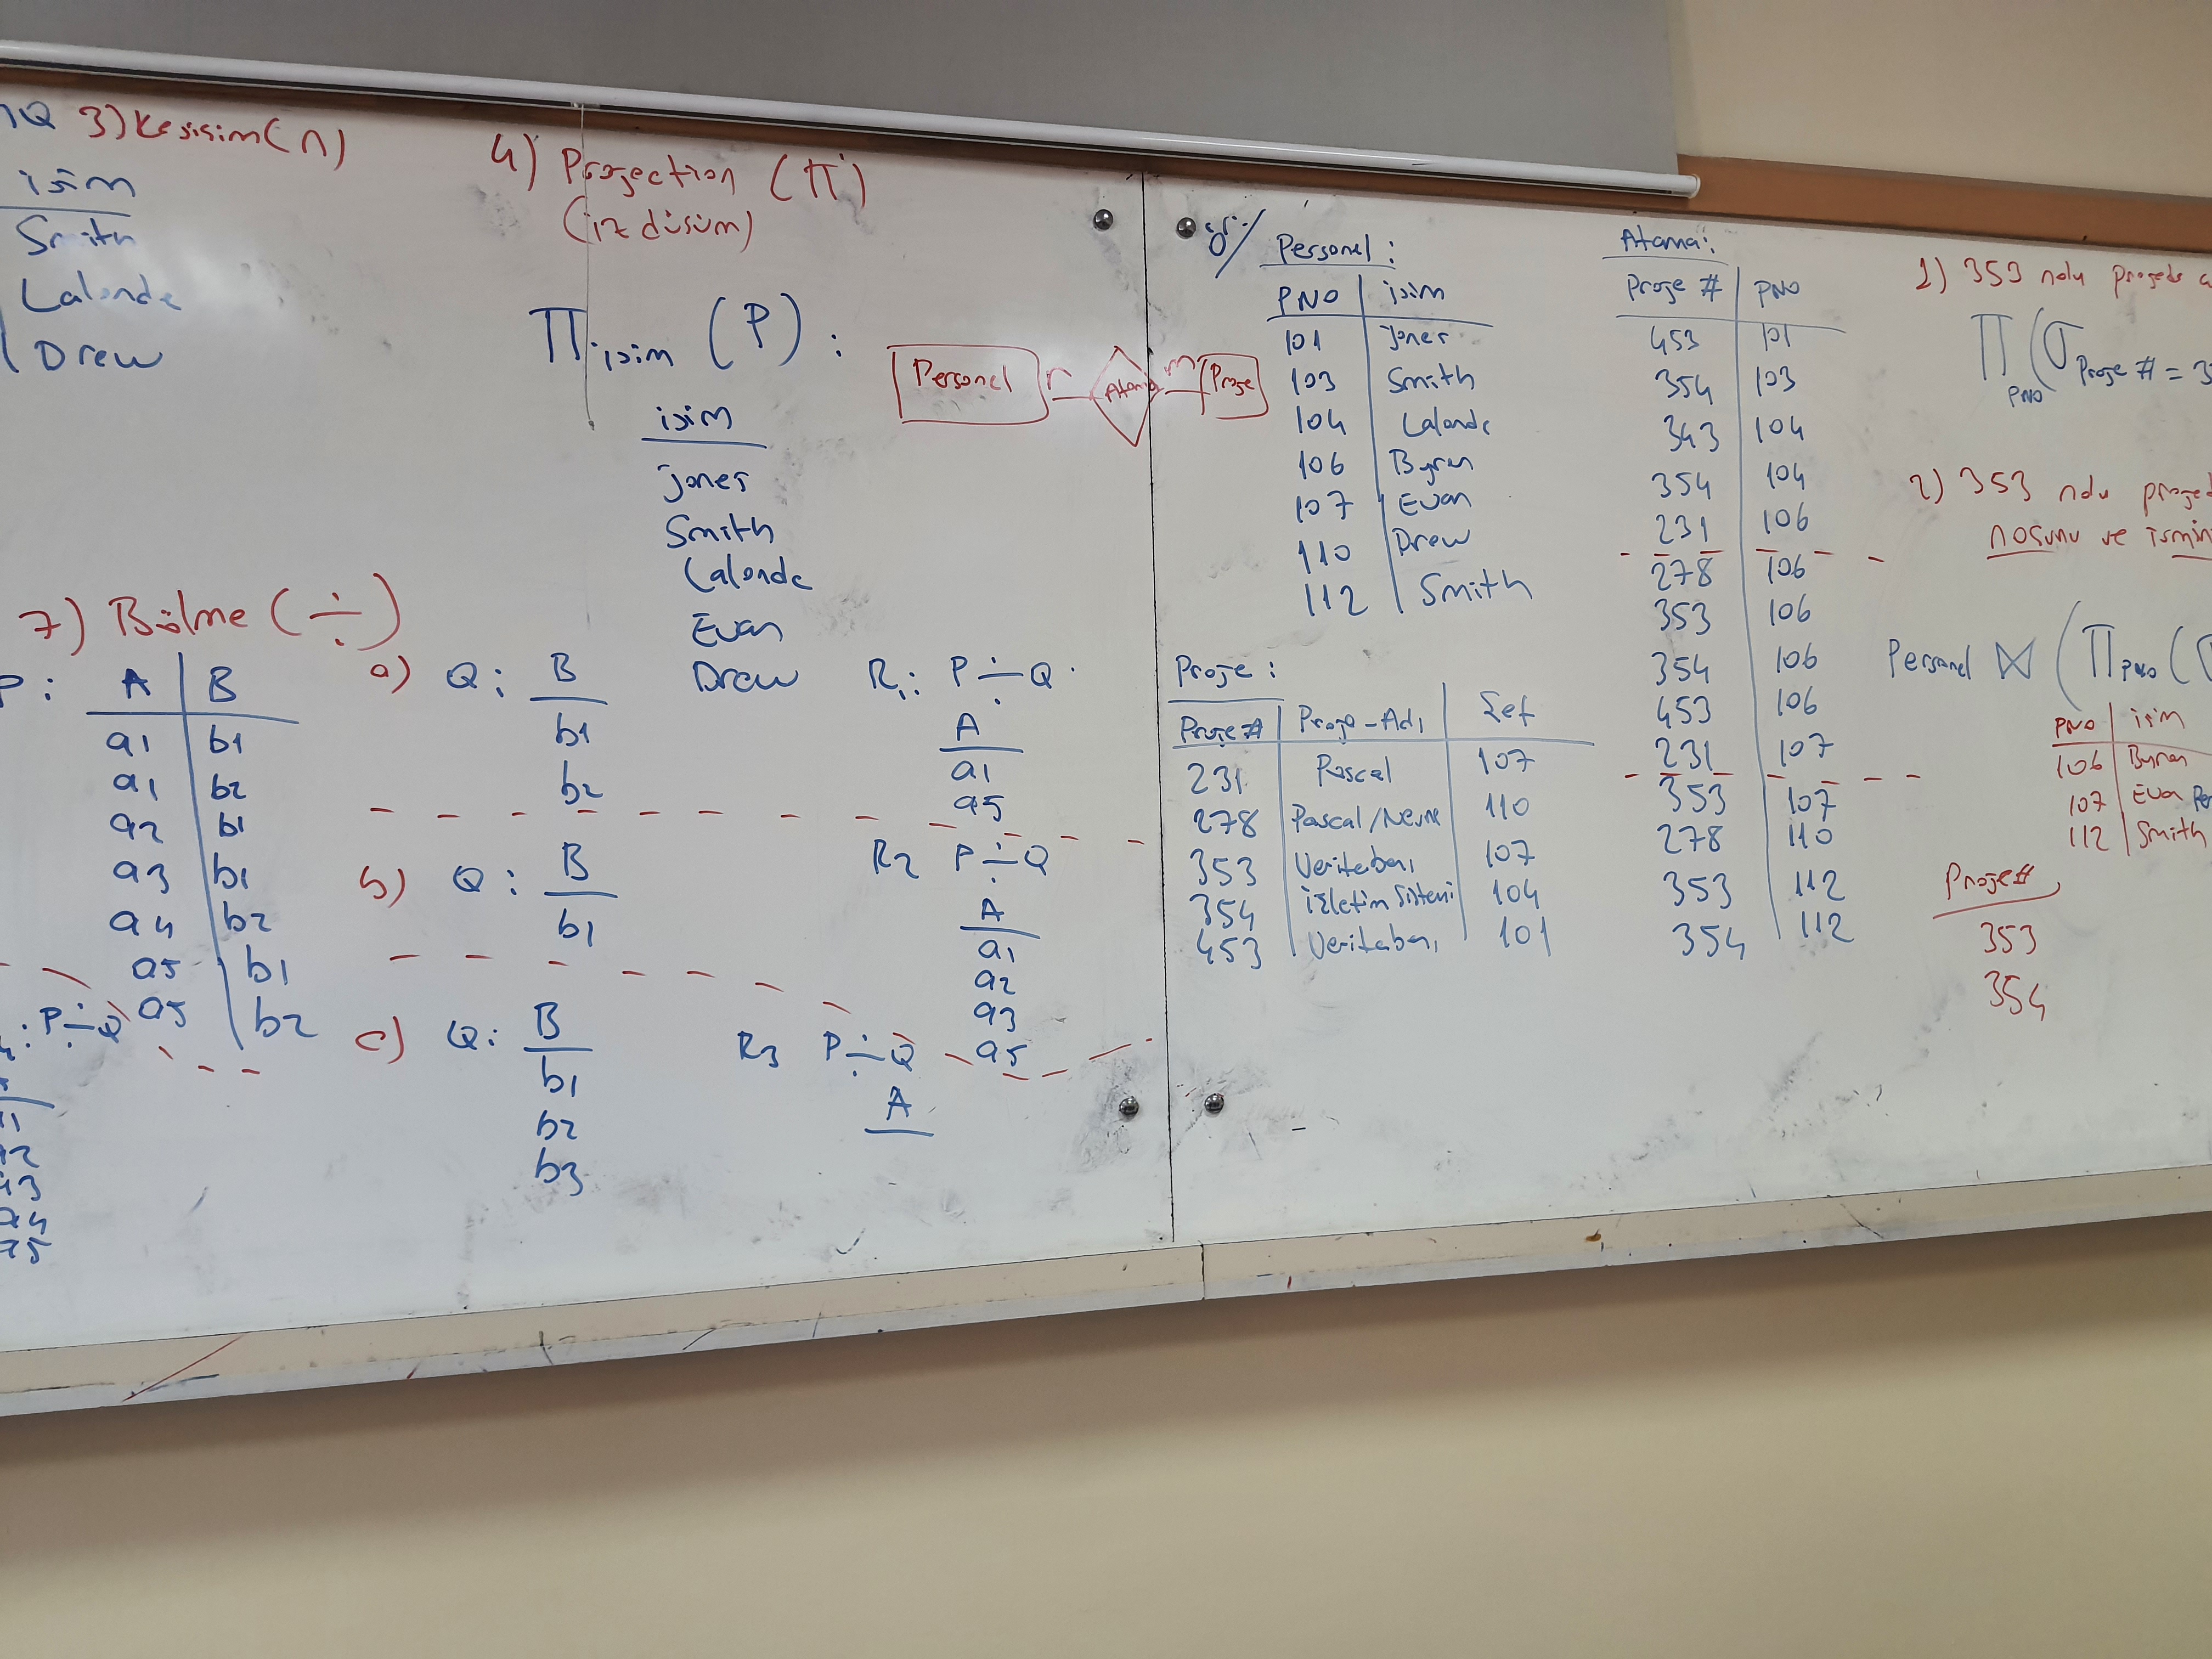 ∩Q 3) Kesişim (∩)
isim
Smith
Lalonde
Drew
4) Projection (π)
(iz düşüm)
π isim (P) :
isim
jones
Smith
Lalonde
Evan
Drew
Personel n Atama m Proje
7) Bölme (÷)
P: A | B
a1 | b1
a1 | b2
a2 | b1
a3 | b1
a4 | b2
a5 | b1
a5 | b2
: P÷Q
a4
a5
a) Q: B
b1
b2
R1: P÷Q
A
a1
a5
b) Q: B
b1
R2 P÷Q
A
a1
a2
a3
a5
c) Q: B
b1
b2
b3
R3 P÷Q
A
ör/
Personel:
PNO | isim
101 | jones
103 | Smith
104 | Lalonde
106 | Byran
107 | Evan
110 | Drew
112 | Smith
Proje:
Proje # | Proje-Adı | Şef
231 | Pascal | 107
278 | Pascal/Nesne | 110
353 | Veritabanı | 107
354 | işletim Sistemi | 104
453 | Veritabanı | 101
Atama:
Proje # | PNO
453 | 101
354 | 103
343 | 104
354 | 104
231 | 106
278 | 106
353 | 106
354 | 106
453 | 106
231 | 107
353 | 107
278 | 110
353 | 112
354 | 112
1) 353 nolu projede
π PNO (σ Proje # = 3
2) 353 nolu projed
nosunu ve ismin
Personel ⋈ (π PNO (σ
PNO | isim
106 | Byran
107 | Evan
112 | Smith
Proje #
353
354